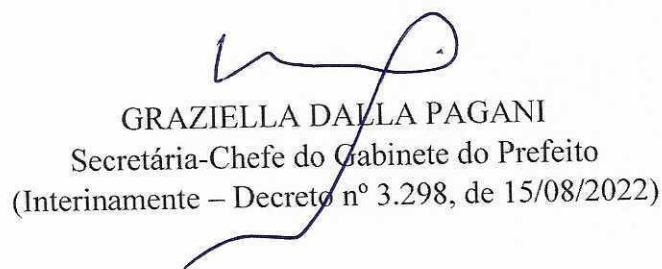 GRAZIELLA DALLA PAGANI
Secretária-Chefe do Gabinete do Prefeito
(Interinamente – Decreto nº 3.298, de 15/08/2022)